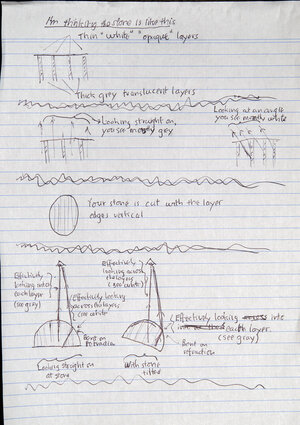 I'm thinking the stone is like this
Thin "white" "opaque" layers
Thick grey translucent layers
Looking straight on,
you see mostly grey
Looking at an angle
you see mostly white
Your stone is cut with the layer
edges vertical
Effectively
looking into
each layer
(see gray)
Effectively looking
across the layers
(see white)
Bent on
refraction
Looking straight on
at stone
Effectively
looking across
the layers
(see white)
Effectively looking
into each layer.
(see gray)
Bent on
refraction
With stone
tilted